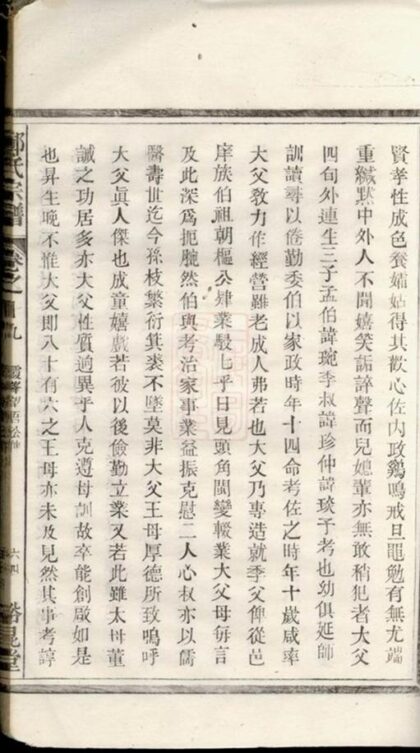 賢孝性成色養孀姑得其歡心佐內政鷄鳴戒旦黽勉有無尤端
重緘默中外人不聞嬉笑詬誶聲而兒媳輩亦無敢稍犯者大父
四旬外連生三子孟伯諱琬季叔諱珍仲諱琰予考也幼俱延師
訓讀尋以倦勤委伯以家政時年十四命考佐之時年十歲咸率
大父教力作經營雖老成人弗若也大父乃專造就季父俾從邑
庠族伯祖朝樞公肄業駸乎日見頭角閫變輟業大父母每言
及此深爲扼腕然伯與考治家事業益振克慰二人心叔亦以儒
醫壽世迄今孫枝繁衍箕裘不墜莫非大父王母厚德所致嗚呼
大父眞人傑也成童嬉戲若彼以後儉勤立業又若此雖太母董
誡之功居多亦大父性質逈異乎人克遵母訓故卒能創啟如是
也昇生晚不惟大父即八十有六之王母亦未及見然其事考諄
氏宗譜
卷之十九